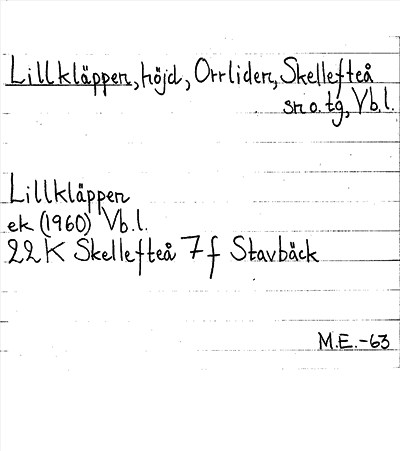 Lillkläppen, höjd, Orrliden, Skellefteå
sn o. tg, Vb.l.
Lillkläppen
ek (1960) Vb.l.
22 K Skellefteå 7 f Stavbäck
M.E.-63